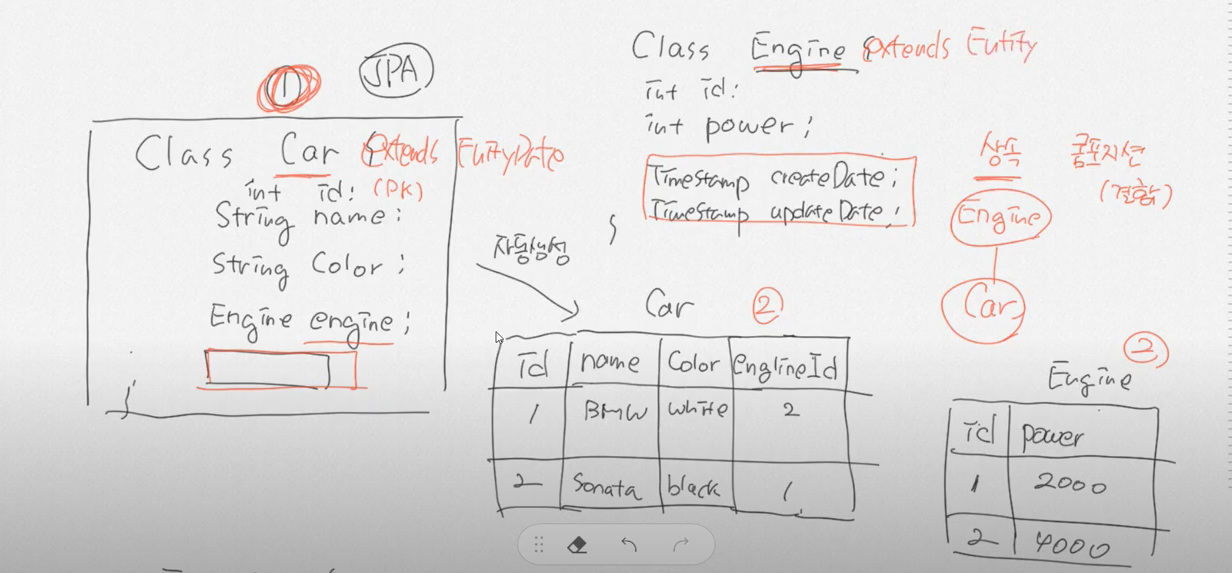 ①
JPA
Class Car { extends EntityDate
int id; (PK)
String name;
String Color;
Engine engine;
}
Class Engine { extends Entity
int id;
int power;
Timestamp createDate;
Timestamp updateDate;
}
상속
콤포지션
(결합)
Engine
Car
자동생성
Car ②
id name Color englineId
1 BMW white 2
2 Sonata black 1
②
Engine
id power
1 2000
2 4000